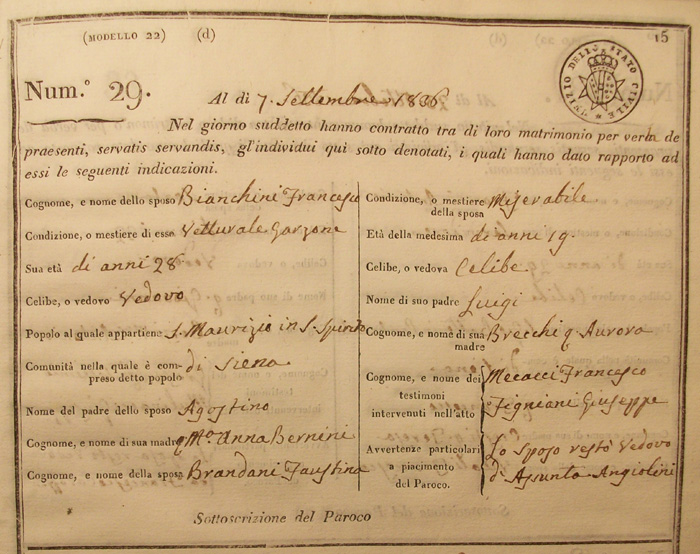 (MODELLO 22) (d)
15
UFIZIO DELLO STATO CIVILE
Num.º 29.
Al di 7. Settembre 1836
Nel giorno suddetto hanno contratto tra di loro matrimonio per verba de
praesenti, servatis servandis, gl'individui qui sotto denotati, i quali hanno dato rapporto ad
essi le seguenti indicazioni.
Cognome, e nome dello sposo Bianchini Francesco
Condizione, o mestiere di esso Vetturale Garzone
Sua età di anni 28
Celibe, o vedovo Vedovo
Popolo al quale appartiene S. Maurizio in S. Spirito
Comunità nella quale è com-
preso detto popolo di Siena
Nome del padre dello sposo Agostino
Cognome, e nome di sua madre q Mª. Anna Bernini
Cognome, e nome della sposa Brandani Faustina
Condizione, o mestiere
della sposa Miserabile
Età della medesima di anni 19.
Celibe, o vedova Celibe
Nome di suo padre Luigi
Cognome, e nome di sua
madre Brecchi q. Aurora
Cognome, e nome dei
testimoni
intervenuti nell'atto
Mecacci Francesco
Figniani Giuseppe
Avvertenze particolari
a piacimento
del Paroco.
Lo Sposo restò Vedovo
d'Assunta Angiolini
Sottoscrizione del Paroco